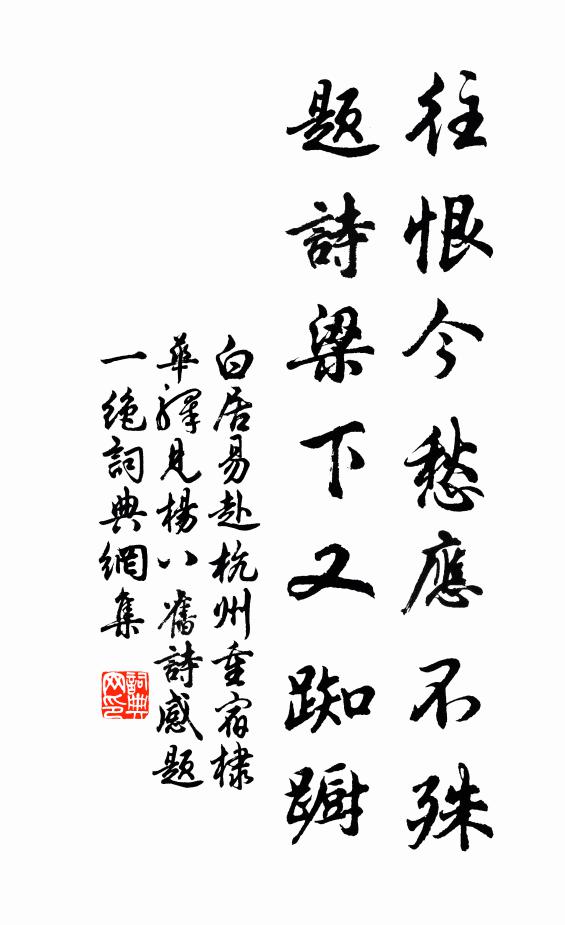 往恨今愁應不殊
題詩梁下又踟躕
白居易赴杭州重宿棣
華驛見楊八舊詩感題
一絶詞典網集
詞典网印